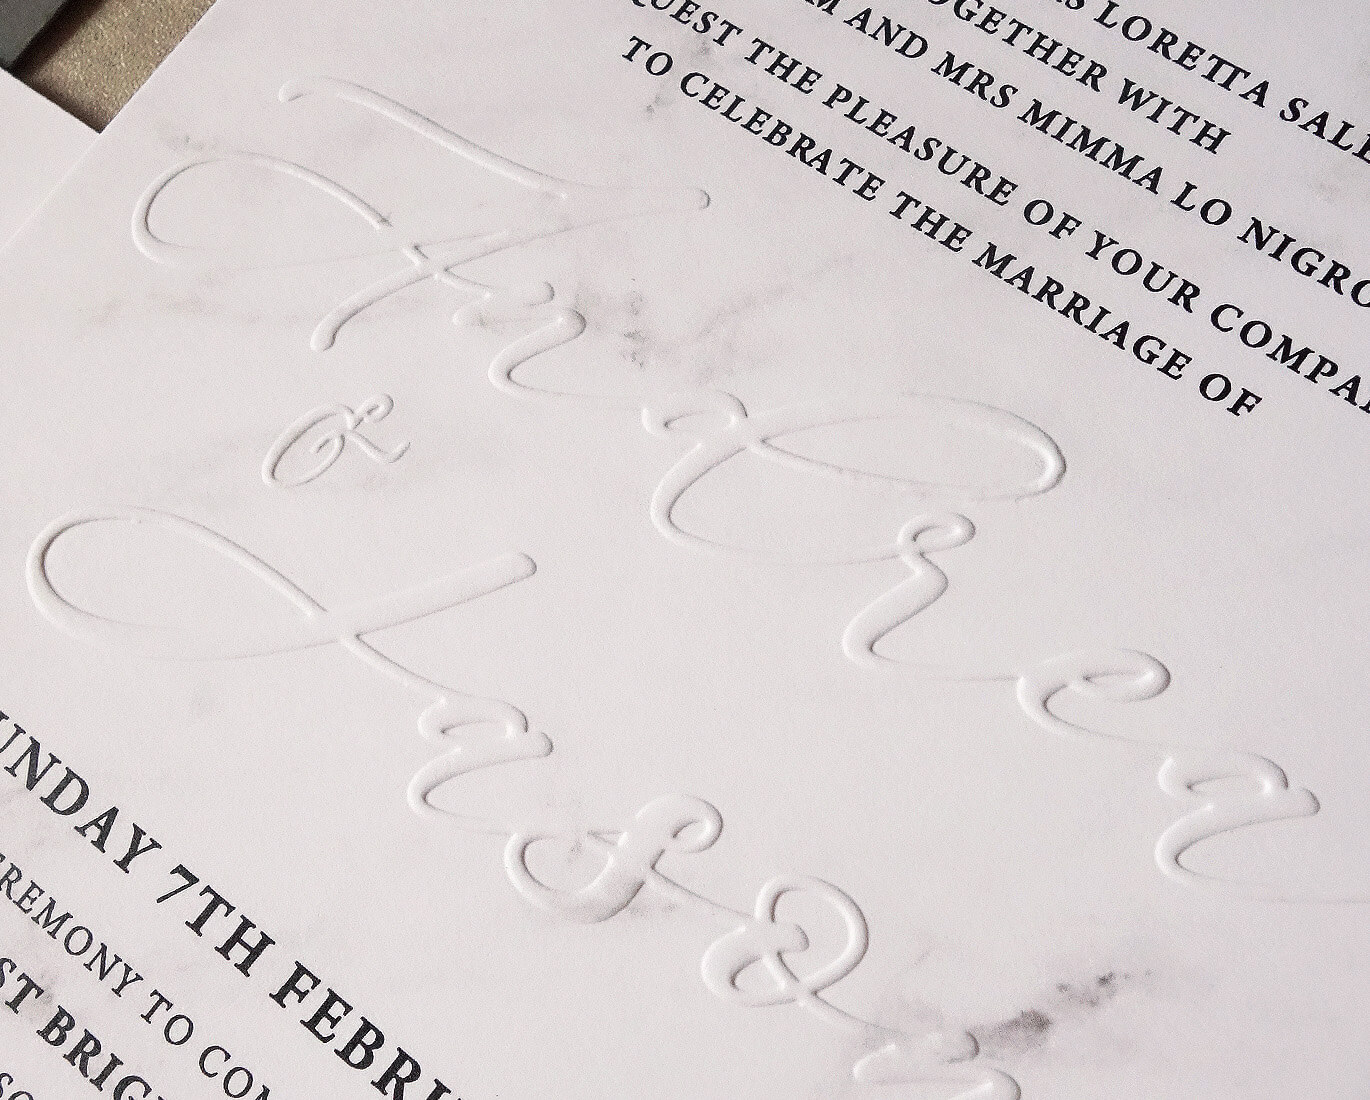 LORETTA SALE
OGETHER WITH
M AND MRS MIMMA LO NIGRO
QUEST THE PLEASURE OF YOUR COMPA
TO CELEBRATE THE MARRIAGE OF
Andrea
&
Jason
UNDAY 7TH FEBRU
EREMONY TO COM
ST BRIG